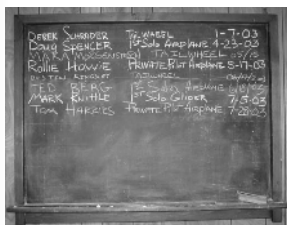 DEREK SCHRADER TAILWHEEL 1-7-03
DOUG SPENCER 1ST SOLO AIRPLANE 4-23-03
TAILWHEEL
ROLLIE HOWIE PRIVATE PILOT AIRPLANE 5-17-03
TAILWHEEL
TED BERG 1ST SOLO AIRPLANE
MARK KNITTLE 1ST SOLO GLIDER 7-5-03
TOM HARRIES PRIVATE PILOT AIRPLANE 7-28-03